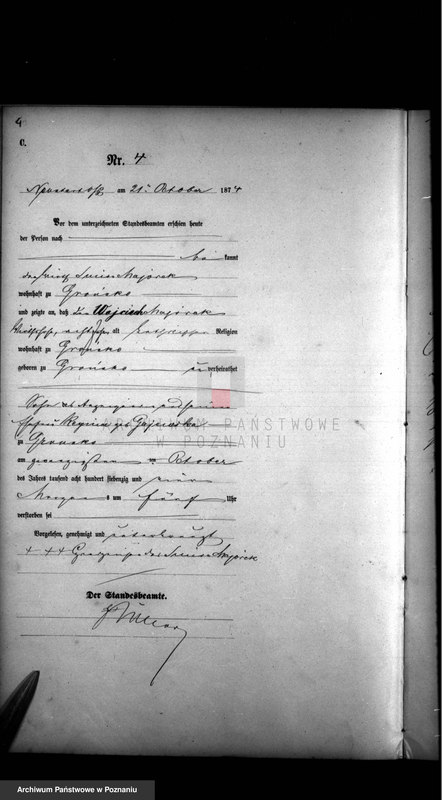 4
C.
Nr. 4
am 21. October 1874
Vor dem unterzeichneten Standesbeamten erschien heute
der Person nach
be kannt
der Wirth Majorek
wohnhaft zu Gronsko
und zeigte an, daß der Wojciech Majorek
alt Religion
wohnhaft zu Gronsko
geboren zu Gronsko un verheirathet
Sohn des und seiner
Ehefrau Regina geb.
zu Gronsko
am zwanzigsten October
des Jahres tausend acht hundert siebenzig und vier
Morgens um fünf Uhr
verstorben sei
Vorgelesen, genehmigt und unterkreuzt
+ + + des Majorek
Der Standesbeamte.
ARCHIWUM PAŃSTWOWE
W POZNANIU
Archiwum Państwowe w Poznaniu